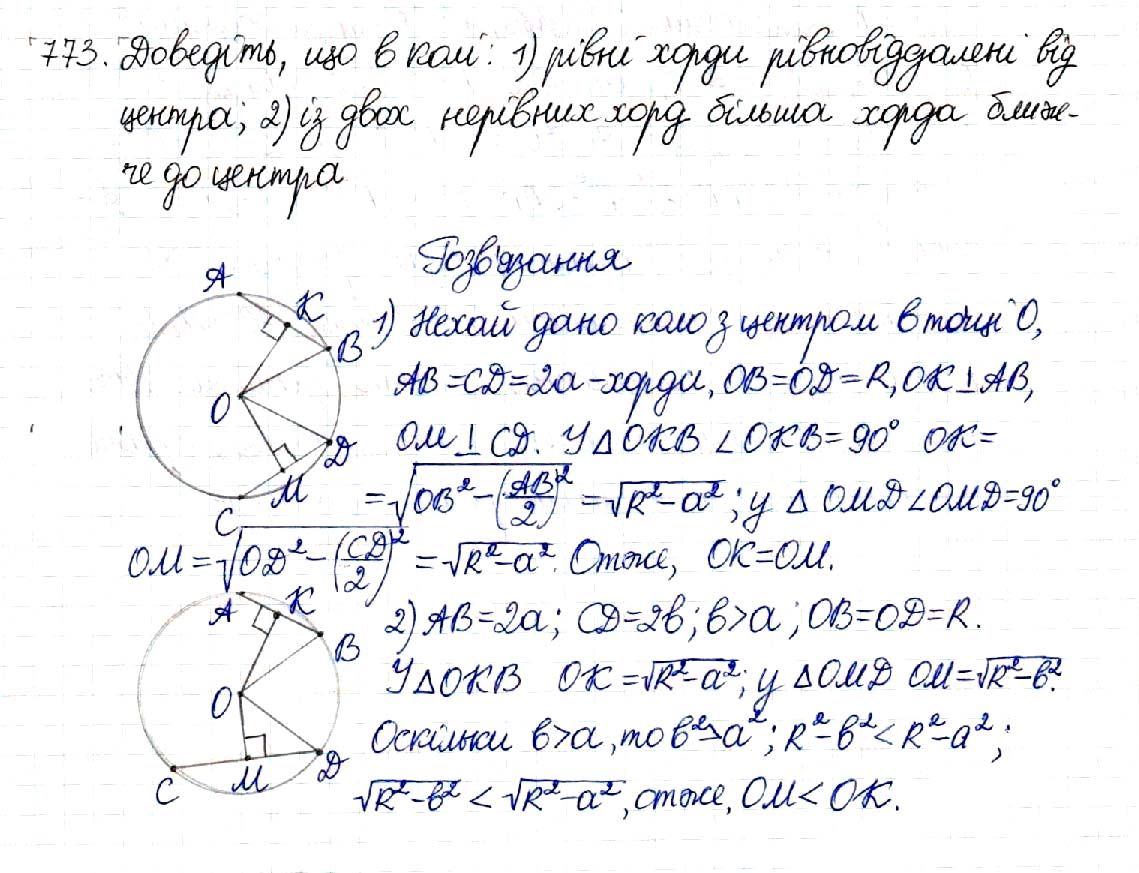 773. Доведіть, що в колі: 1) рівні хорди рівновіддалені від
центра; 2) із двох нерівних хорд більша хорда ближ-
че до центра
Розв'язання
A
K
B
O
D
M
C
1) Нехай дано коло з центром в точці O,
AB=CD=2a-хорди, OB=OD=R, OK⊥AB,
OM⊥CD. У △OKB ∠OKB=90° OK=
=√(OB²-(AB/2)²)=√(R²-a²); у △OMD ∠OMD=90°
OM=√(OD²-(CD/2)²)=√(R²-a²). Отже, OK=OM.
A
K
B
O
C
M
D
2) AB=2a; CD=2b; b>a; OB=OD=R.
У △OKB OK=√(R²-a²); у △OMD OM=√(R²-b²).
Оскільки b>a, то b²>a²; R²-b²<R²-a²;
√(R²-b²)<√(R²-a²), отже, OM<OK.